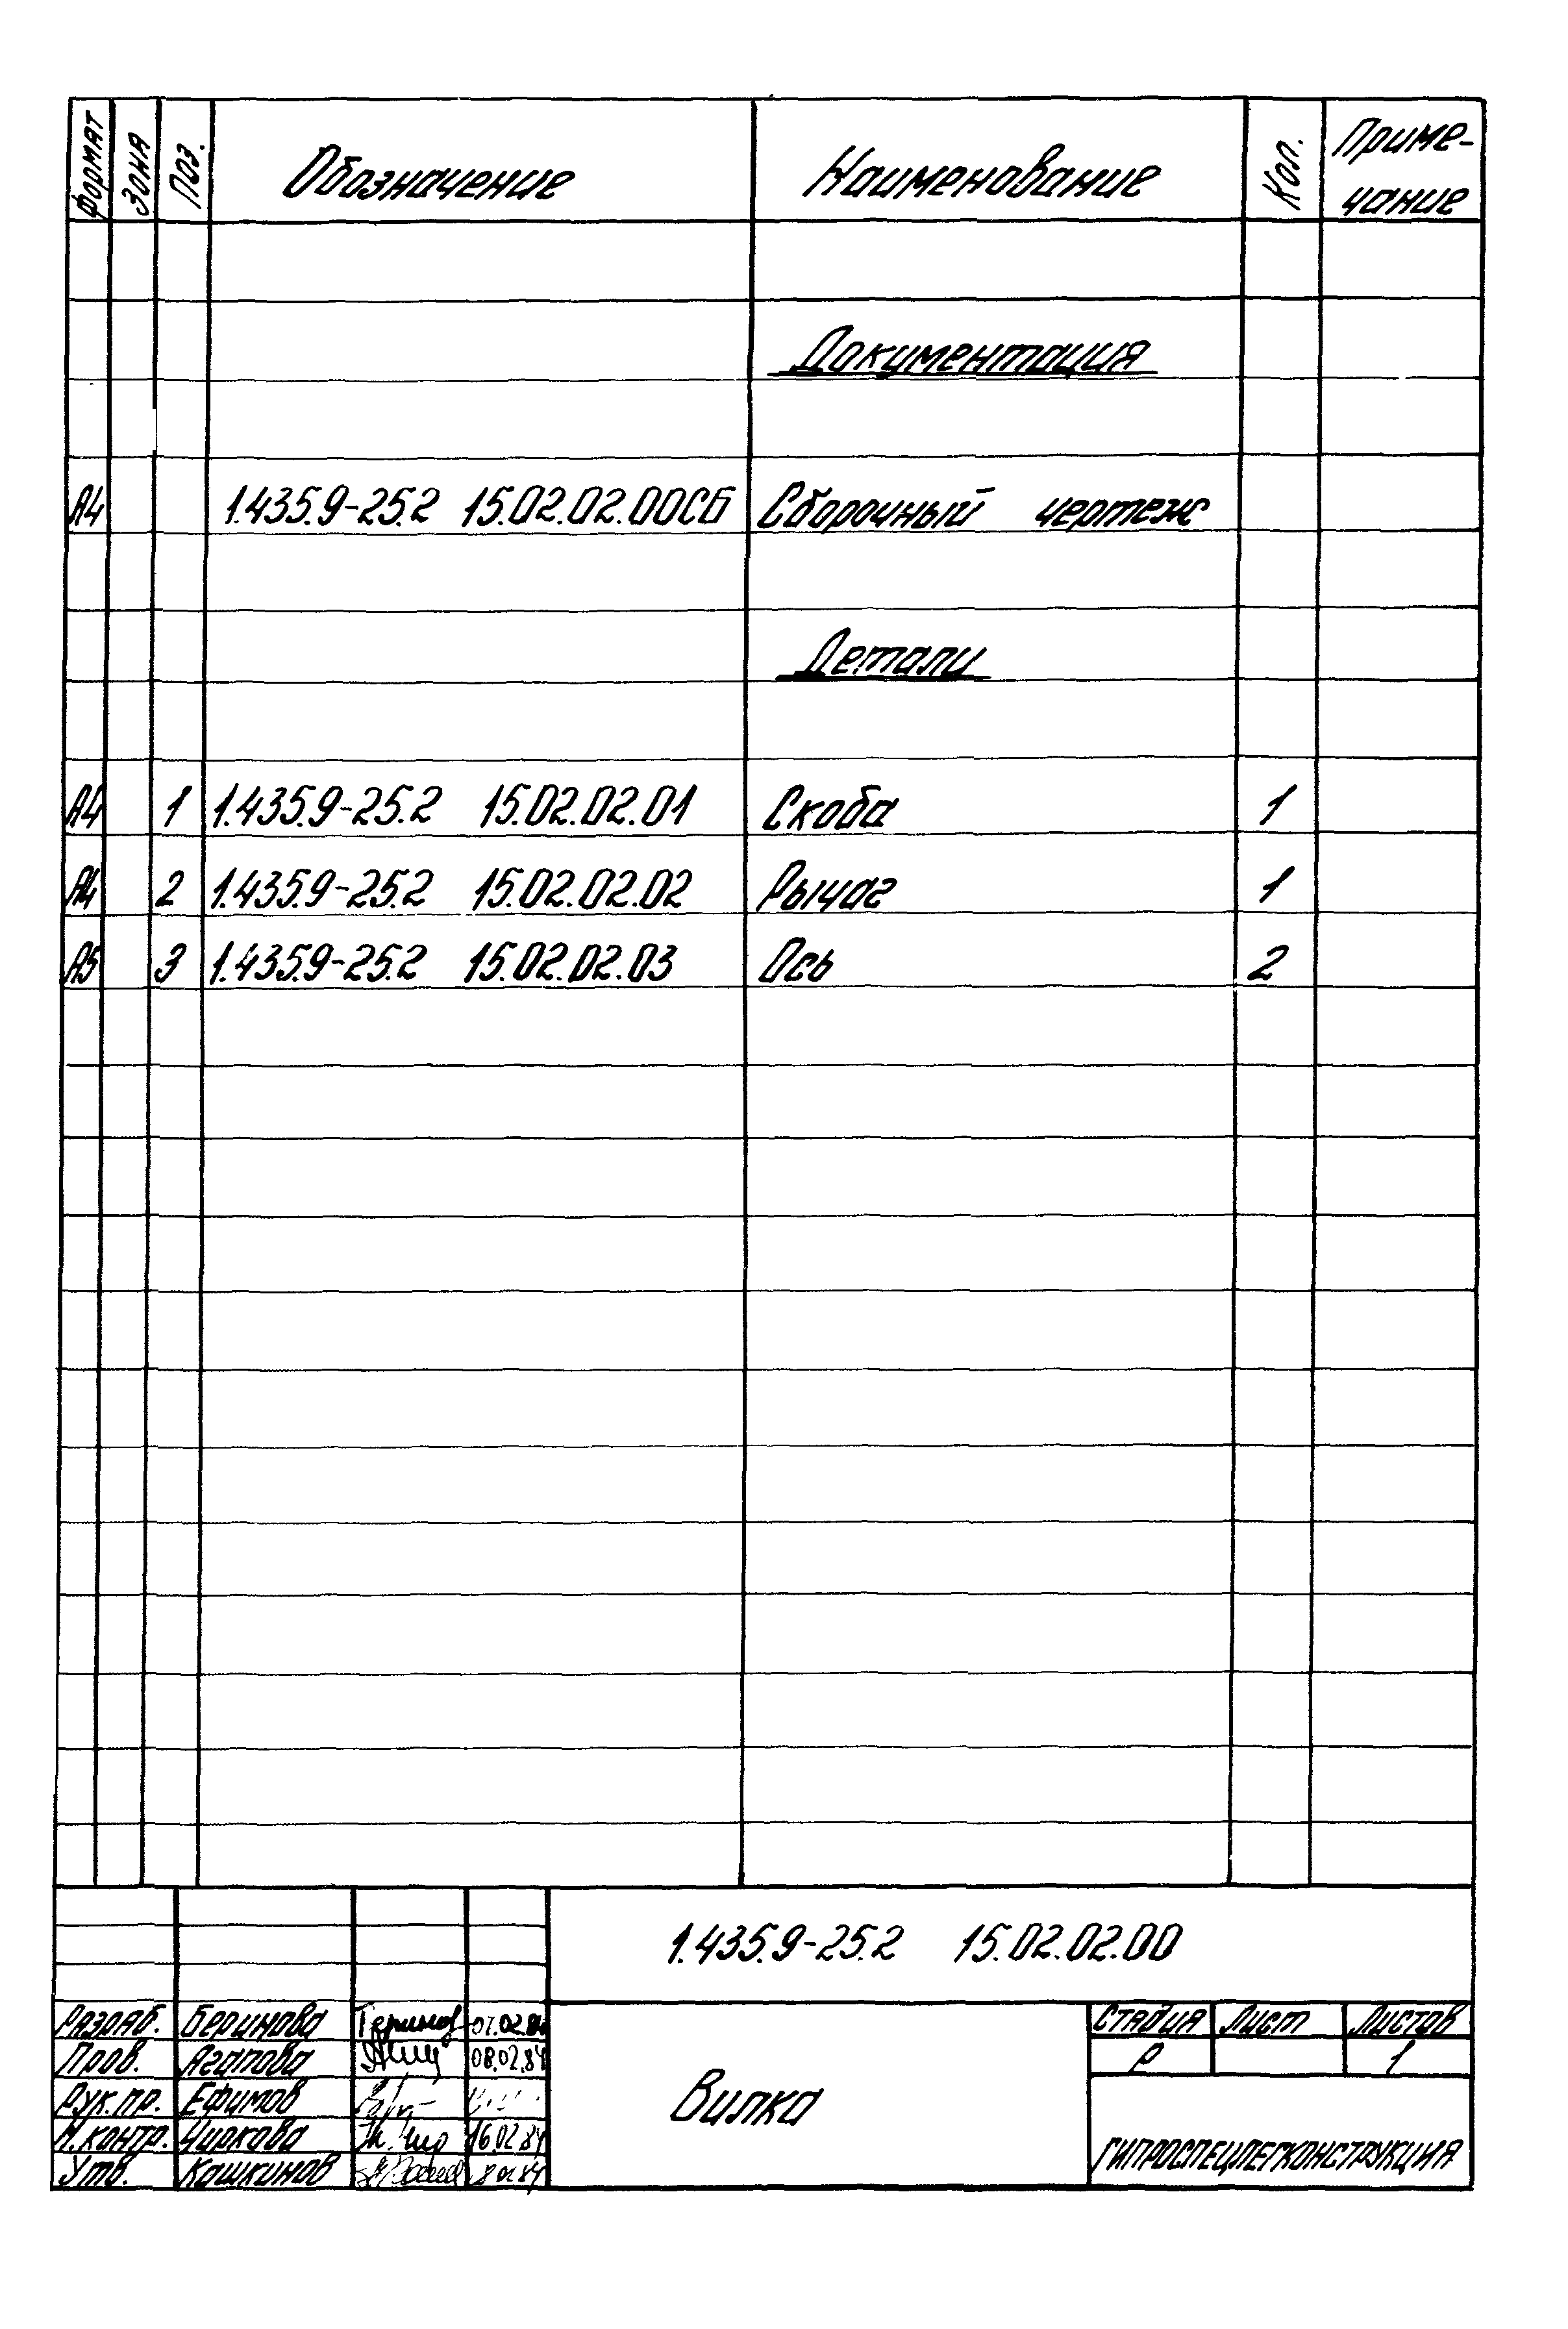 Формат Зона Поз. Обозначение Наименование Кол. Приме-
чание
Документация
А4 1.435.9-25.2 15.02.02.00СБ Сборочный чертеж
Детали
А4 1 1.435.9-25.2 15.02.02.01 Скоба 1
А4 2 1.435.9-25.2 15.02.02.02 Рычаг 1
А5 3 1.435.9-25.2 15.02.02.03 Ось 2
1.435.9-25.2 15.02.02.00
Разраб. Беринова 07.02.84
Пров. Агапова 08.02.84
Рук.пр. Ефимов
Н.контр. Чиркова 16.02.84
Утв. Кашкинов
Вилка
Стадия Лист Листов
Р 1
ГИПРОСПЕЦЛЕГКОНСТРУКЦИЯ